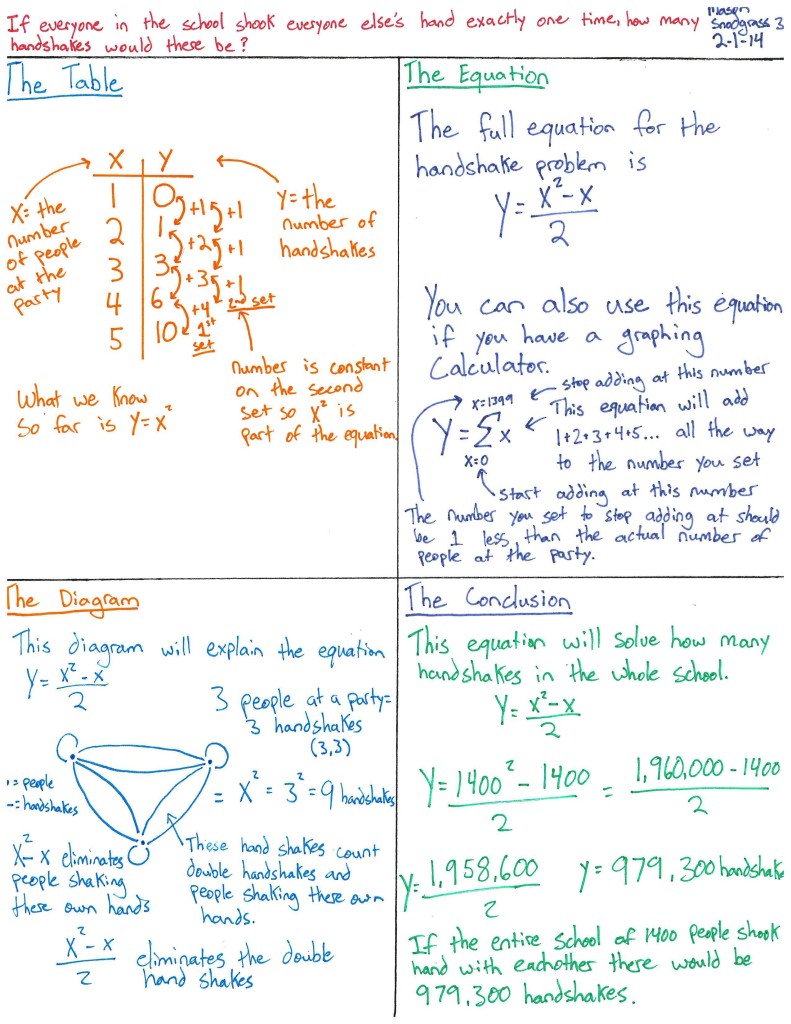 If everyone in the school shook everyone else's hand exactly one time, how many
handshakes would there be?
Mason
Snodgrass 3
2-1-14
The Table
X Y
1 0
2 1
3 3
4 6
5 10
+1 +1
+2 +1
+3 +1
+4 2nd set
1st
set
X= the
number
of people
at the
party
Y= the
number of
handshakes
number is constant
on the second
set so x² is
part of the equation
What we know
So far is y=x²
The Equation
The full equation for the
handshake problem is
Y= x²-x
2
You can also use this equation
if you have a graphing
Calculator.
x=1399 ← stop adding at this number
Y=Σx
x=0
This equation will add
1+2+3+4+5... all the way
to the number you set
Start adding at this number
The number you set to stop adding at should
be 1 less than the actual number of
people at the party.
The Diagram
This diagram will explain the equation
Y= x²-x
2
3 people at a party=
3 handshakes
(3,3)
•= people
-= handshakes
= x² = 3² = 9 handshakes
These hand shakes count
double handshakes and
people shaking there own
hands.
X²-x eliminates
people shaking
there own hands
x²-x
2
eliminates the double
hand shakes
The Conclusion
This equation will solve how many
handshakes in the whole school.
Y= x²-x
2
Y= 1400² - 1400
2
= 1,960,000 - 1400
2
y= 1,958,600
2
y= 979,300 handshake
If the entire school of 1400 people shook
hand with eachother there would be
979,300 handshakes.